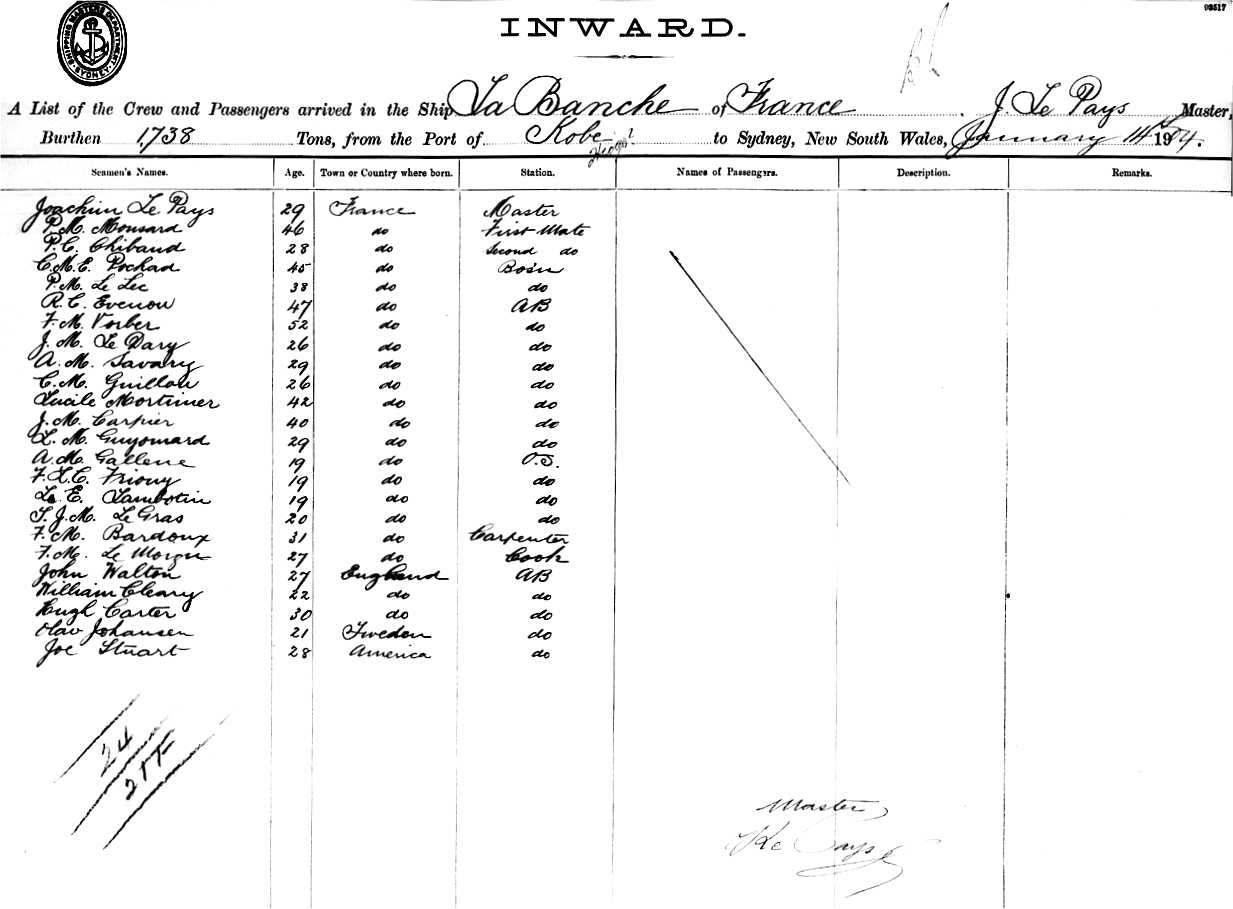 SHIPPING MASTERS DEPARTMENT SYDNEY
03517
INWARD.
A List of the Crew and Passengers arrived in the Ship La Banche of France. J. Le Pays Master,
Burthen 1,738 Tons, from the Port of Kobe to Sydney, New South Wales, January 14 1904.
Hiogo?
Seamen's Names. Age. Town or Country where born. Station. Names of Passengers. Description. Remarks.
Joachim Le Pays 29 France Master
P. M. Monsard 46 do First Mate
P. C. Chibaud 28 do Second do
C. M. E. Pochad 45 do Bosn
P. M. Le Lec 38 do do
R. C. Evenou 47 do AB
F. M. Vorber 52 do do
J. M. Le Dary 26 do do
A. M. Savary 29 do do
C. M. Guillou 26 do do
Lucile Mortimer 42 do do
J. M. Carpier 40 do do
L. M. Guyomard 29 do do
A. M. Gallene 19 do O.S.
F. L. C. Friouy 19 do do
L. E. Lambotin 19 do do
S. J. M. Le Gras 20 do do
F. M. Bardoux 31 do Carpenter
F. M. Le 27 do Cook
John Walton 27 England AB
William Cleary 22 do do
Hugh Carter 30 do do
Olav Johansen 21 Sweden do
Joe Stuart 28 America do
24
Master
Le Pays